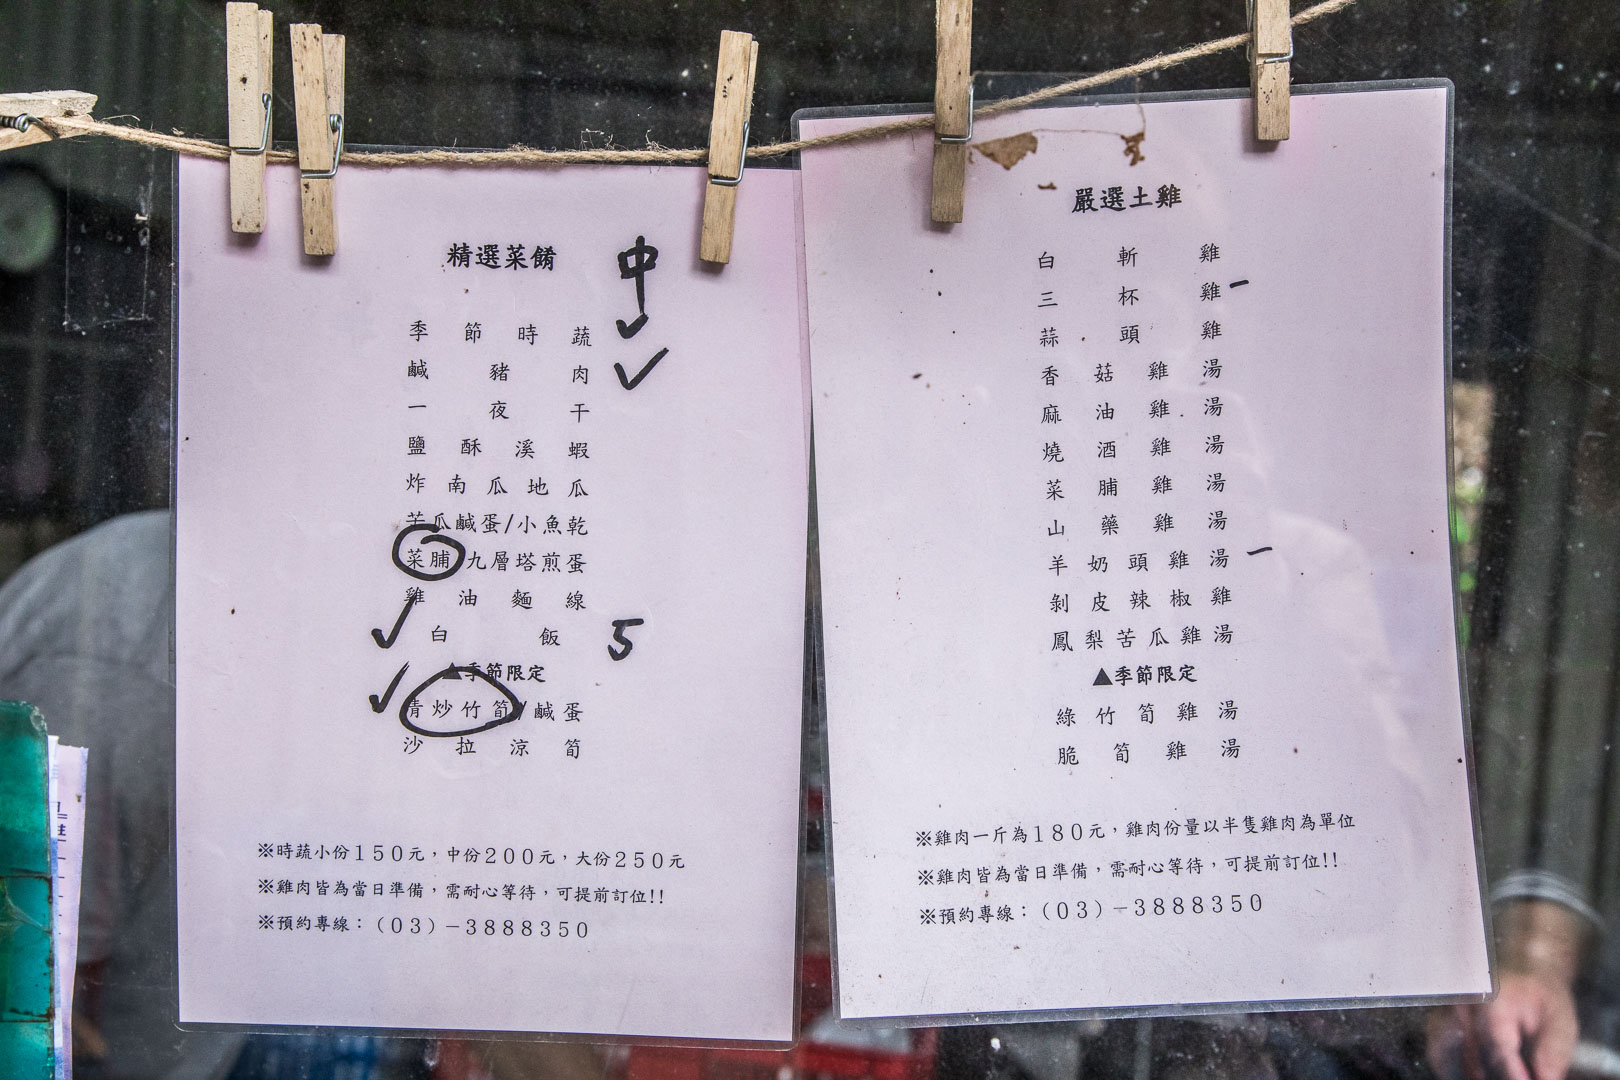 精選菜餚
中
季節時蔬
鹹豬肉
一夜干
鹽酥溪蝦
炸南瓜地瓜
苦瓜鹹蛋/小魚乾
菜脯九層塔煎蛋
雞油麵線
白飯 5
▲季節限定
清炒竹筍/鹹蛋
沙拉涼筍
※時蔬小份150元，中份200元，大份250元
※雞肉皆為當日準備，需耐心等待，可提前訂位!!
※預約專線：(03)－3888350
嚴選土雞
白斬雞
三杯雞 一
蒜頭雞
香菇雞湯
麻油雞湯
燒酒雞湯
菜脯雞湯
山藥雞湯
羊奶頭雞湯 一
剝皮辣椒雞
鳳梨苦瓜雞湯
▲季節限定
綠竹筍雞湯
脆筍雞湯
※雞肉一斤為180元，雞肉份量以半隻雞肉為單位
※雞肉皆為當日準備，需耐心等待，可提前訂位!!
※預約專線：(03)－3888350